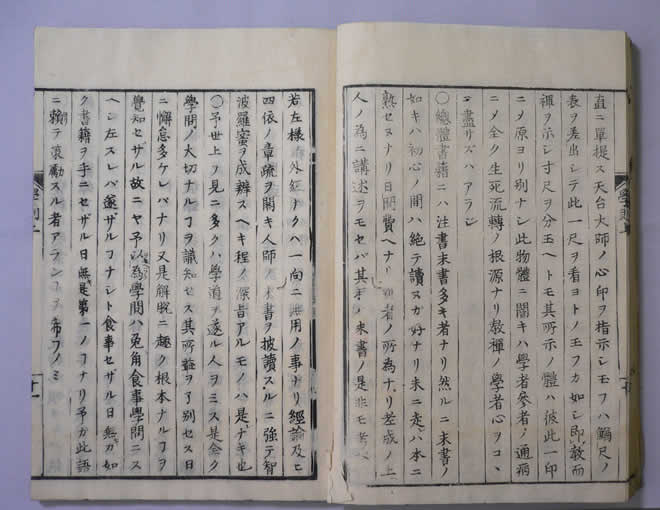 直ニ單提ス天台大師ノ心印ヲ指示シモフハ鍋尺ノ
表ヲ差出シテ此一尺ヲ看ヨトノモフカ如シ即教而
禪ヲ示シ寸尺ヲ分玉ヘトモ其所示ノ體ハ彼此一印
ニメ原ヨリ別ナシ此物體ニ闇キハ學者參者ノ通病
ニメ全ク生死流轉ノ根源ナリ教禪ノ學者心ヲコヽ
ニ盡サズハアラジ
〇總體書籍ニハ注書末書多キ者ナリ然ルニ末書ノ
如キハ初心ノ間ハ絶テ讀ヌカ好ナリ末ニ走ハ本ニ
熟セヌナリ日間費ヘナリ 者ノ所為ナリ差成ノ上
人ノ為ニ講述ヲモセバ其 末書ノ是非モ考
若左様 外ナクハ一向ニ無用ノ事ナリ經論及ヒ
四依ノ章疏ヲ開キ人師ノ末書ヲ披讀スルニ強テ智
波羅蜜ヲ成辨スヘキ程ノ深旨アルモノハ是ナキ也
〇予世上ヲ見ニ多クハ學道ヲ遂ル人ヲミス是全ク
學問ノ大切ナルヿヲ識知セス其所益ヲ了別セス日
ニ懈怠多ケレバナリ又是解脱ニ趣ク根本ナルヿヲ
覺知セザル故ニヤ予以為學問ハ兎角食事學問ニス
ヘシ左スレバ遂ザルヿナシト食事セザル日無カ如
ク書籍ヲ手ニセザル日無是第一ノヿナリ予カ此語
ニ賴テ策勵スル者アランヿヲ希フノミ